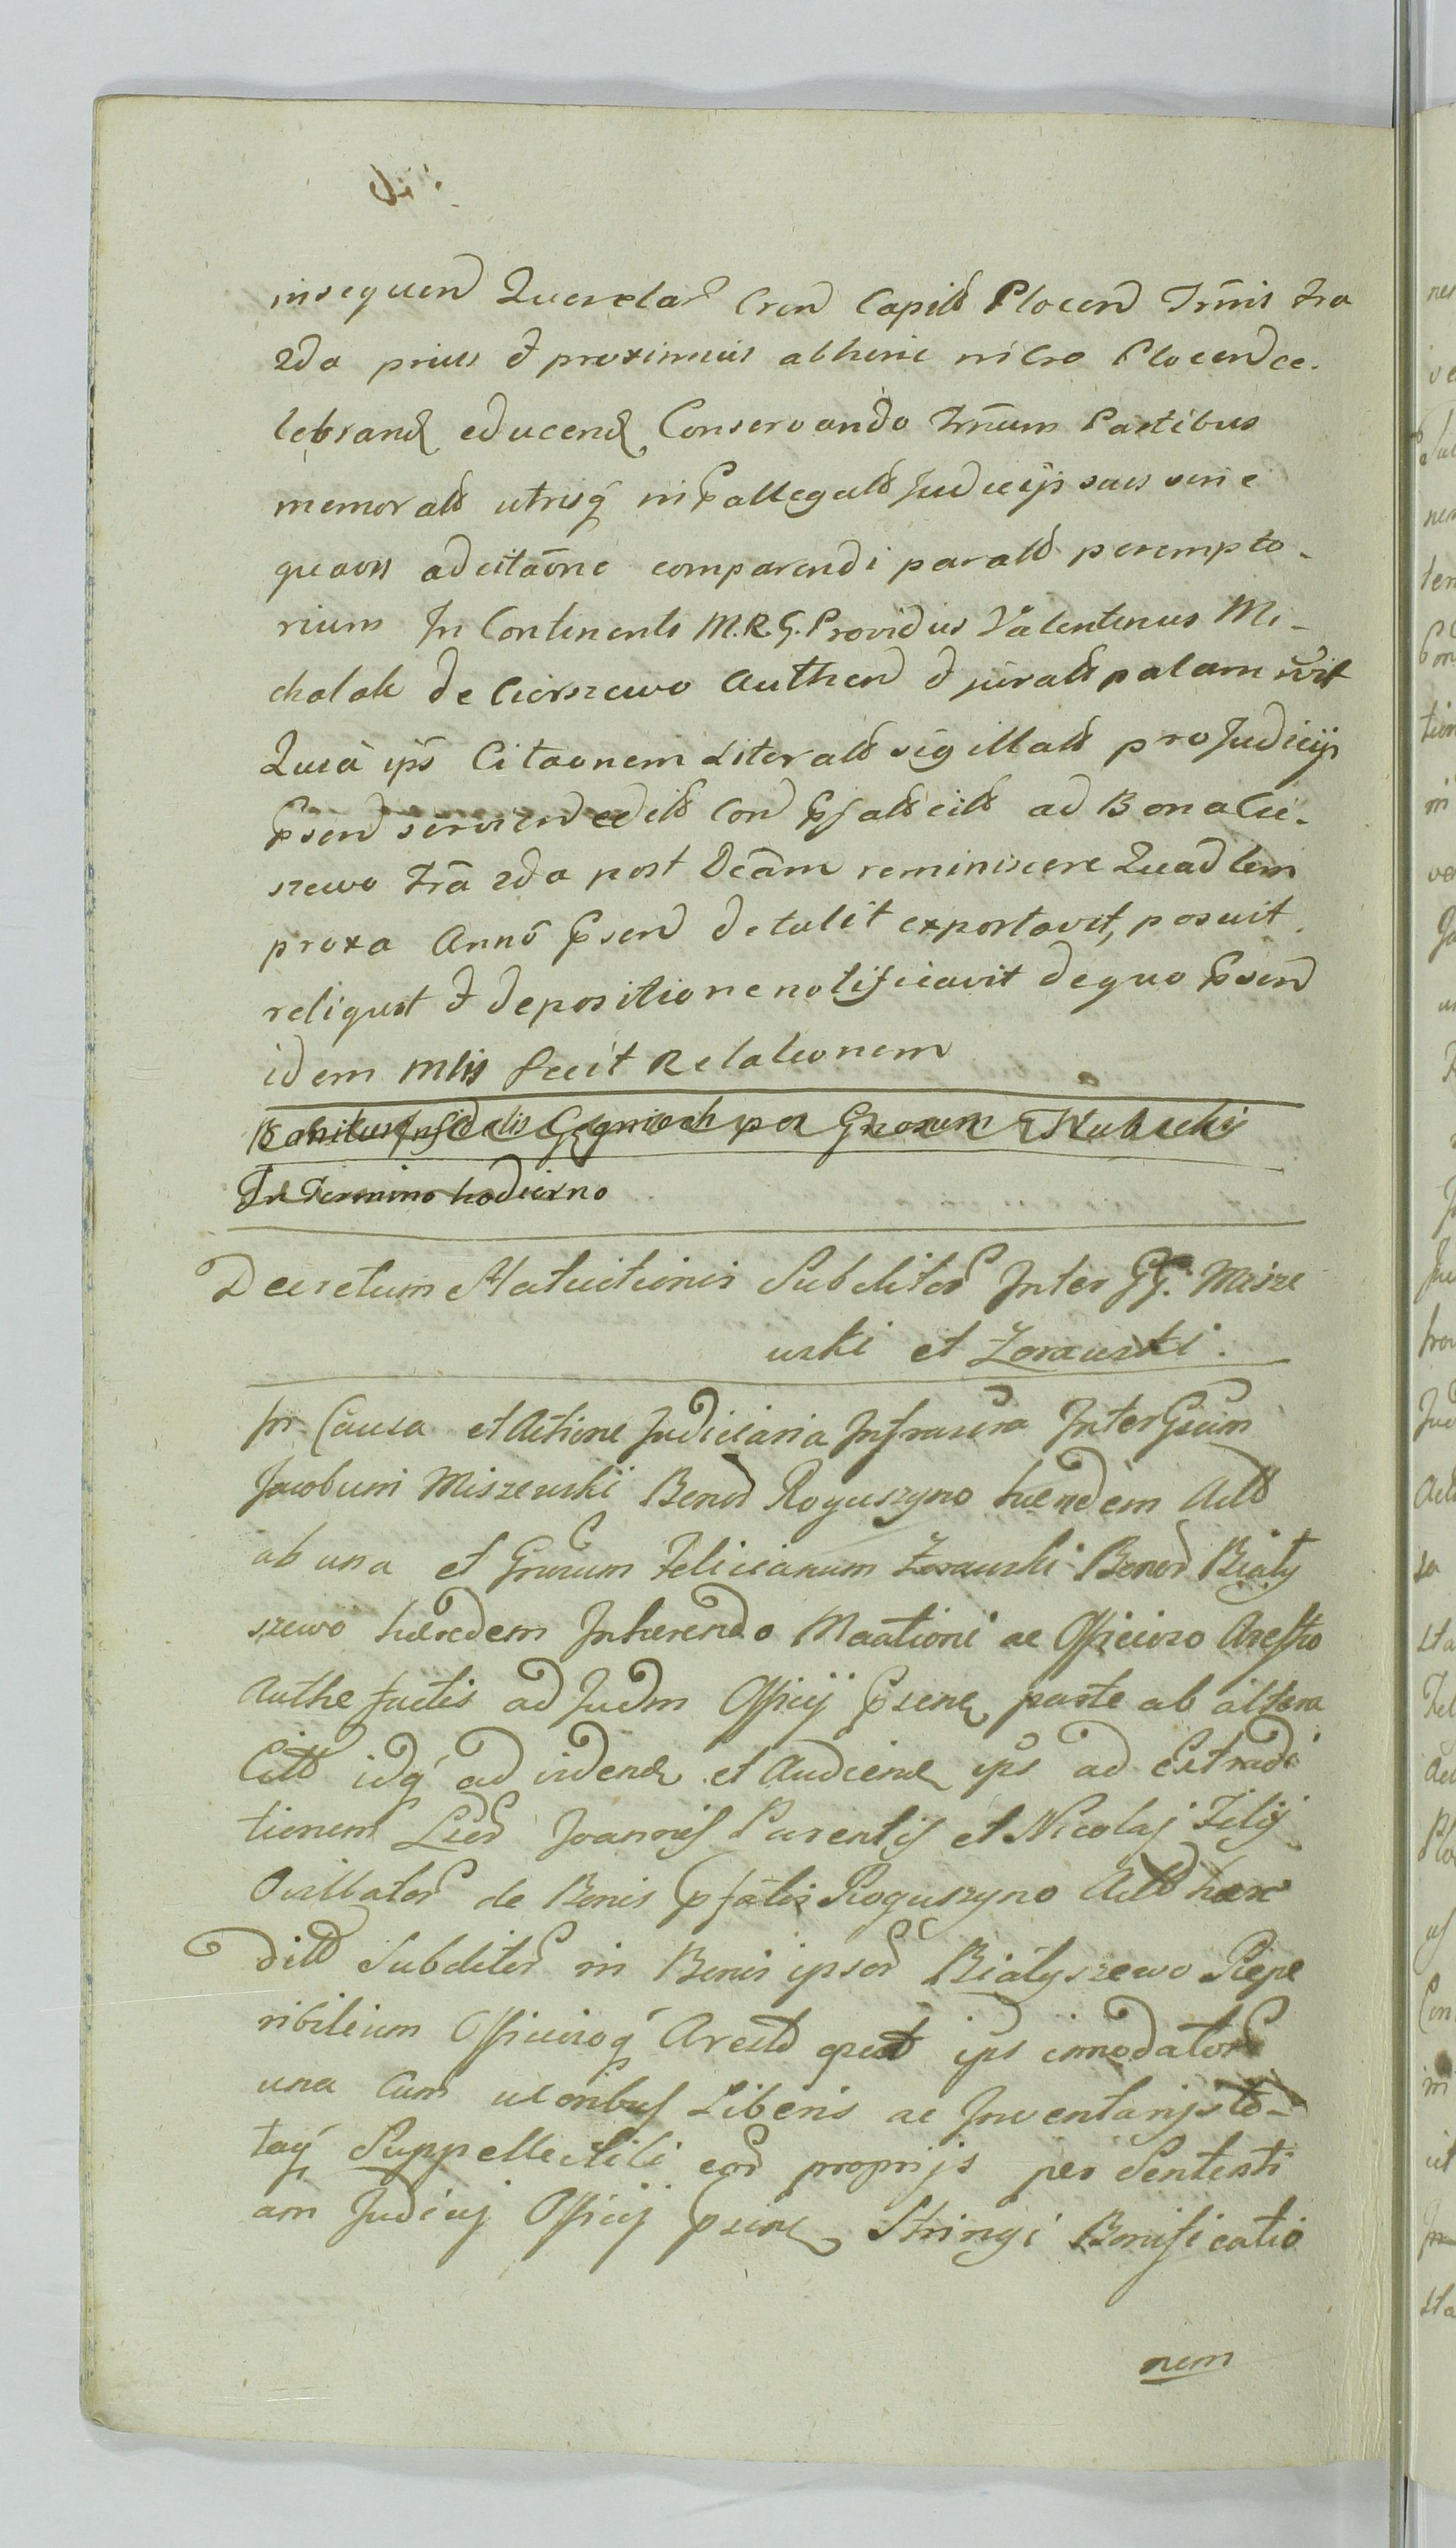 insequen Querelar Cren Capit Plocen Trmis fra
2da prius & proximius abhinc in Cro Plocen ce-
lebrand educend Conservando Trmum Partibus
memorat utrisq in Pallegat Judicijs suis sine
quavis adcitaone comparendi parat perempto-
rium In Continenti M.R.G. Providus Valentinus Mi-
chalak de Cierszewo Authen & jurat palam
Quia ips Citaonem Literat sigillat pro Judicijs
Psen edit ad Bona Cie-
szewo fra 2da post Dcam reminiscere Quadlem
proxa Anno Psen detulit exportavit, posuit
reliquit & depositione notificavit de quo Psen
idem Mlis fecit Relationem
per Gnosum Kubicki
In Termino hodierno
Decretum Statuitionis Subditor Inter GG. Misze
wski et Zorawski.
In Causa et Actione Judiciaria Infrascra Inter Gsum
Jacobum Miszewski Bonor Roguszyno hæredem Act
ab una et Gnosum Felicianum Zorawski Bonor Biały
szewo hæredem Inherendo Maationi ac Officioso Aresto
Authe factis ad Judm Officij Psens parte ab altera
Citt idq ad vidend et Audiend ips ad Extradi
tionem Joannis Parentis et Nicolaj Filij
de Bonis Pfatis Roguszyno Act hære
dit Subditor in Bonis ipsor Białyszewo Repe
ribilium Officiosoq Arest ips innodator
una Cum uxoribus Liberis ac Inventarijs to-
taq Suppellectili eor proprijs per Sententi
am Judicij Officij Psens Stringi Bonificatio
nem